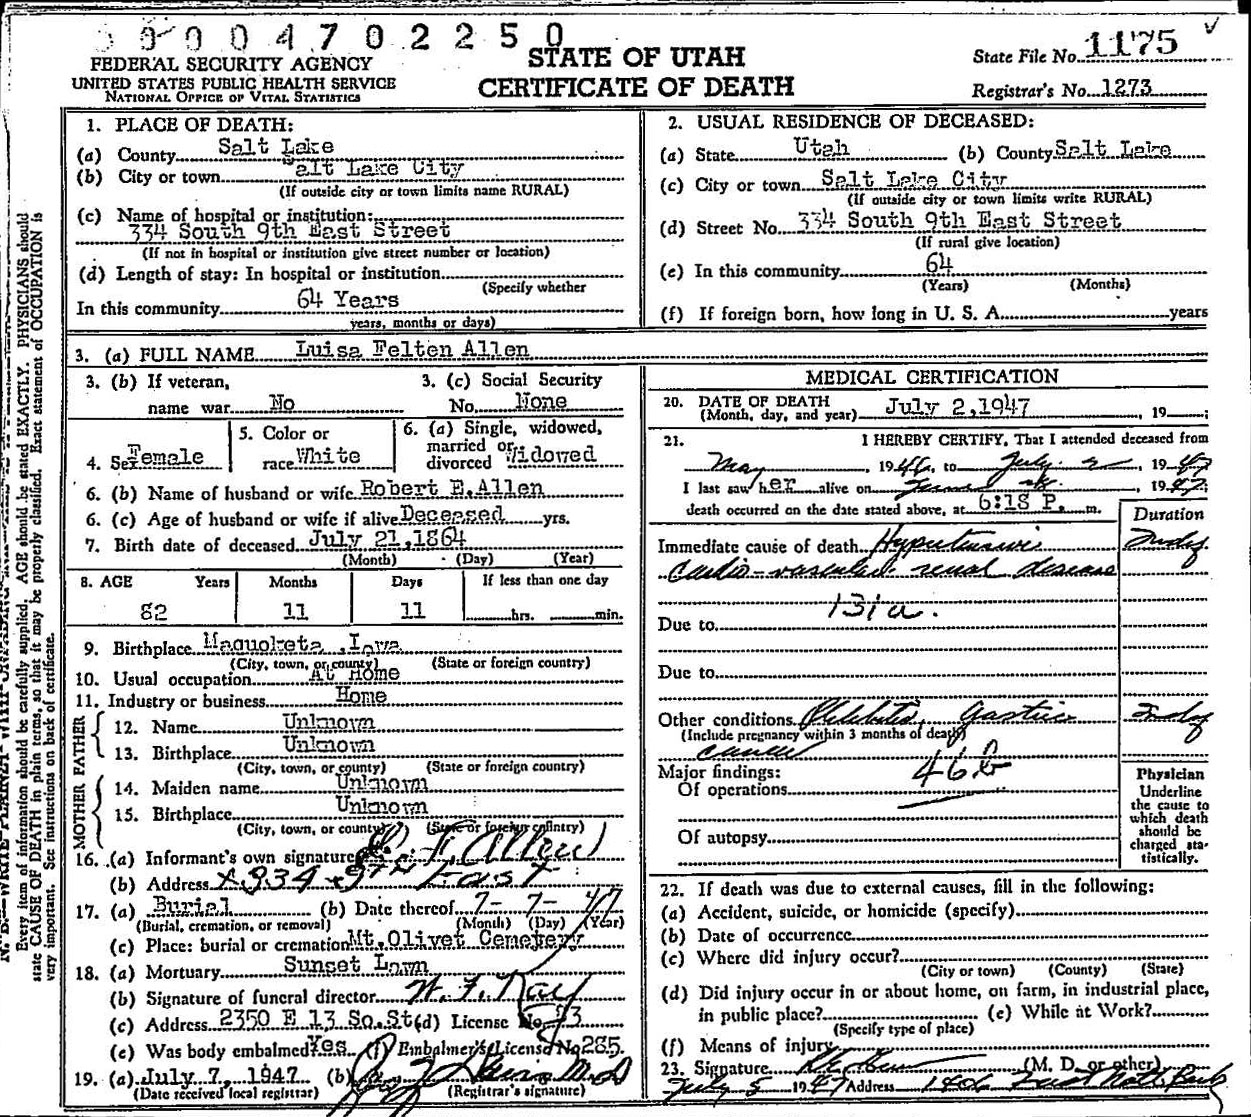 00004702250
FEDERAL SECURITY AGENCY
UNITED STATES PUBLIC HEALTH SERVICE
NATIONAL OFFICE OF VITAL STATISTICS
STATE OF UTAH
CERTIFICATE OF DEATH
State File No. 1175
Registrar's No. 1273
1. PLACE OF DEATH:
(a) County Salt Lake
(b) City or town alt Lake City
(If outside city or town limits name RURAL)
(c) Name of hospital or institution:
334 South 9th East Street
(If not in hospital or institution give street number or location)
(d) Length of stay: In hospital or institution
(Specify whether
In this community 64 Years
years, months or days)
2. USUAL RESIDENCE OF DECEASED:
(a) State Utah (b) County Salt Lake
(c) City or town Salt Lake City
(If outside city or town limits write RURAL)
(d) Street No. 334 South 9th East Street
(If rural give location)
(e) In this community 64
(Years) (Months)
(f) If foreign born, how long in U. S. A. years
3. (a) FULL NAME Luisa Felten Allen
3. (b) If veteran,
name war No
3. (c) Social Security
No. None
4. Sex Female
5. Color or
race White
6. (a) Single, widowed,
married or
divorced Widowed
6. (b) Name of husband or wife Robert E. Allen
6. (c) Age of husband or wife if alive Deceased yrs.
7. Birth date of deceased July 21, 1864
(Month) (Day) (Year)
8. AGE Years Months Days If less than one day
82 11 11 hrs. min.
9. Birthplace Maquoketa, Iowa
(City, town, or county) (State or foreign country)
10. Usual occupation At Home
11. Industry or business Home
FATHER
12. Name Unknown
13. Birthplace Unknown
(City, town, or county) (State or foreign country)
MOTHER
14. Maiden name Unknown
15. Birthplace Unknown
(City, town, or county) (State or foreign country)
16. (a) Informant's own signature F. Allen
(b) Address x 334 - 9TH East
17. (a) Burial (b) Date thereof 7- 7- 47
(Burial, cremation, or removal) (Month) (Day) (Year)
(c) Place: burial or cremation Mt. Olivet Cemetery
18. (a) Mortuary Sunset Lawn
(b) Signature of funeral director
(c) Address 2350 E 13 So. St (d) License No. 73
(e) Was body embalmed Yes (f) Embalmer's License No 285.
19. (a) July 7, 1947 (b)
(Date received local registrar) (Registrar's signature)
MEDICAL CERTIFICATION
20. DATE OF DEATH
(Month, day, and year) July 2, 1947, 19 ;
21. I HEREBY CERTIFY, That I attended deceased from
May, 1946, to July 2, 1947
I last saw her alive on June, 1947;
death occurred on the date stated above, at 6:18 P. m.
Duration
Immediate cause of death Hypertensive
Cardio-vascular renal disease
131a.
Due to
Due to
Other conditions Phlebitis, Gastric
(Include pregnancy within 3 months of death)
cancer
46b
Major findings:
Of operations
Of autopsy
Physician
Underline
the cause to
which death
should be
charged sta-
tistically.
22. If death was due to external causes, fill in the following:
(a) Accident, suicide, or homicide (specify)
(b) Date of occurrence
(c) Where did injury occur?
(City or town) (County) (State)
(d) Did injury occur in or about home, on farm, in industrial place,
in public place? (e) While at Work?
(Specify type of place)
(f) Means of injury
23. Signature (M. D. or other)
July 5 1947 Address
Every item of information should be carefully supplied. AGE should be stated EXACTLY. PHYSICIANS should
state CAUSE OF DEATH in plain terms, so that it may be properly classified. Exact statement of OCCUPATION is
very important. See instructions on back of certificate.